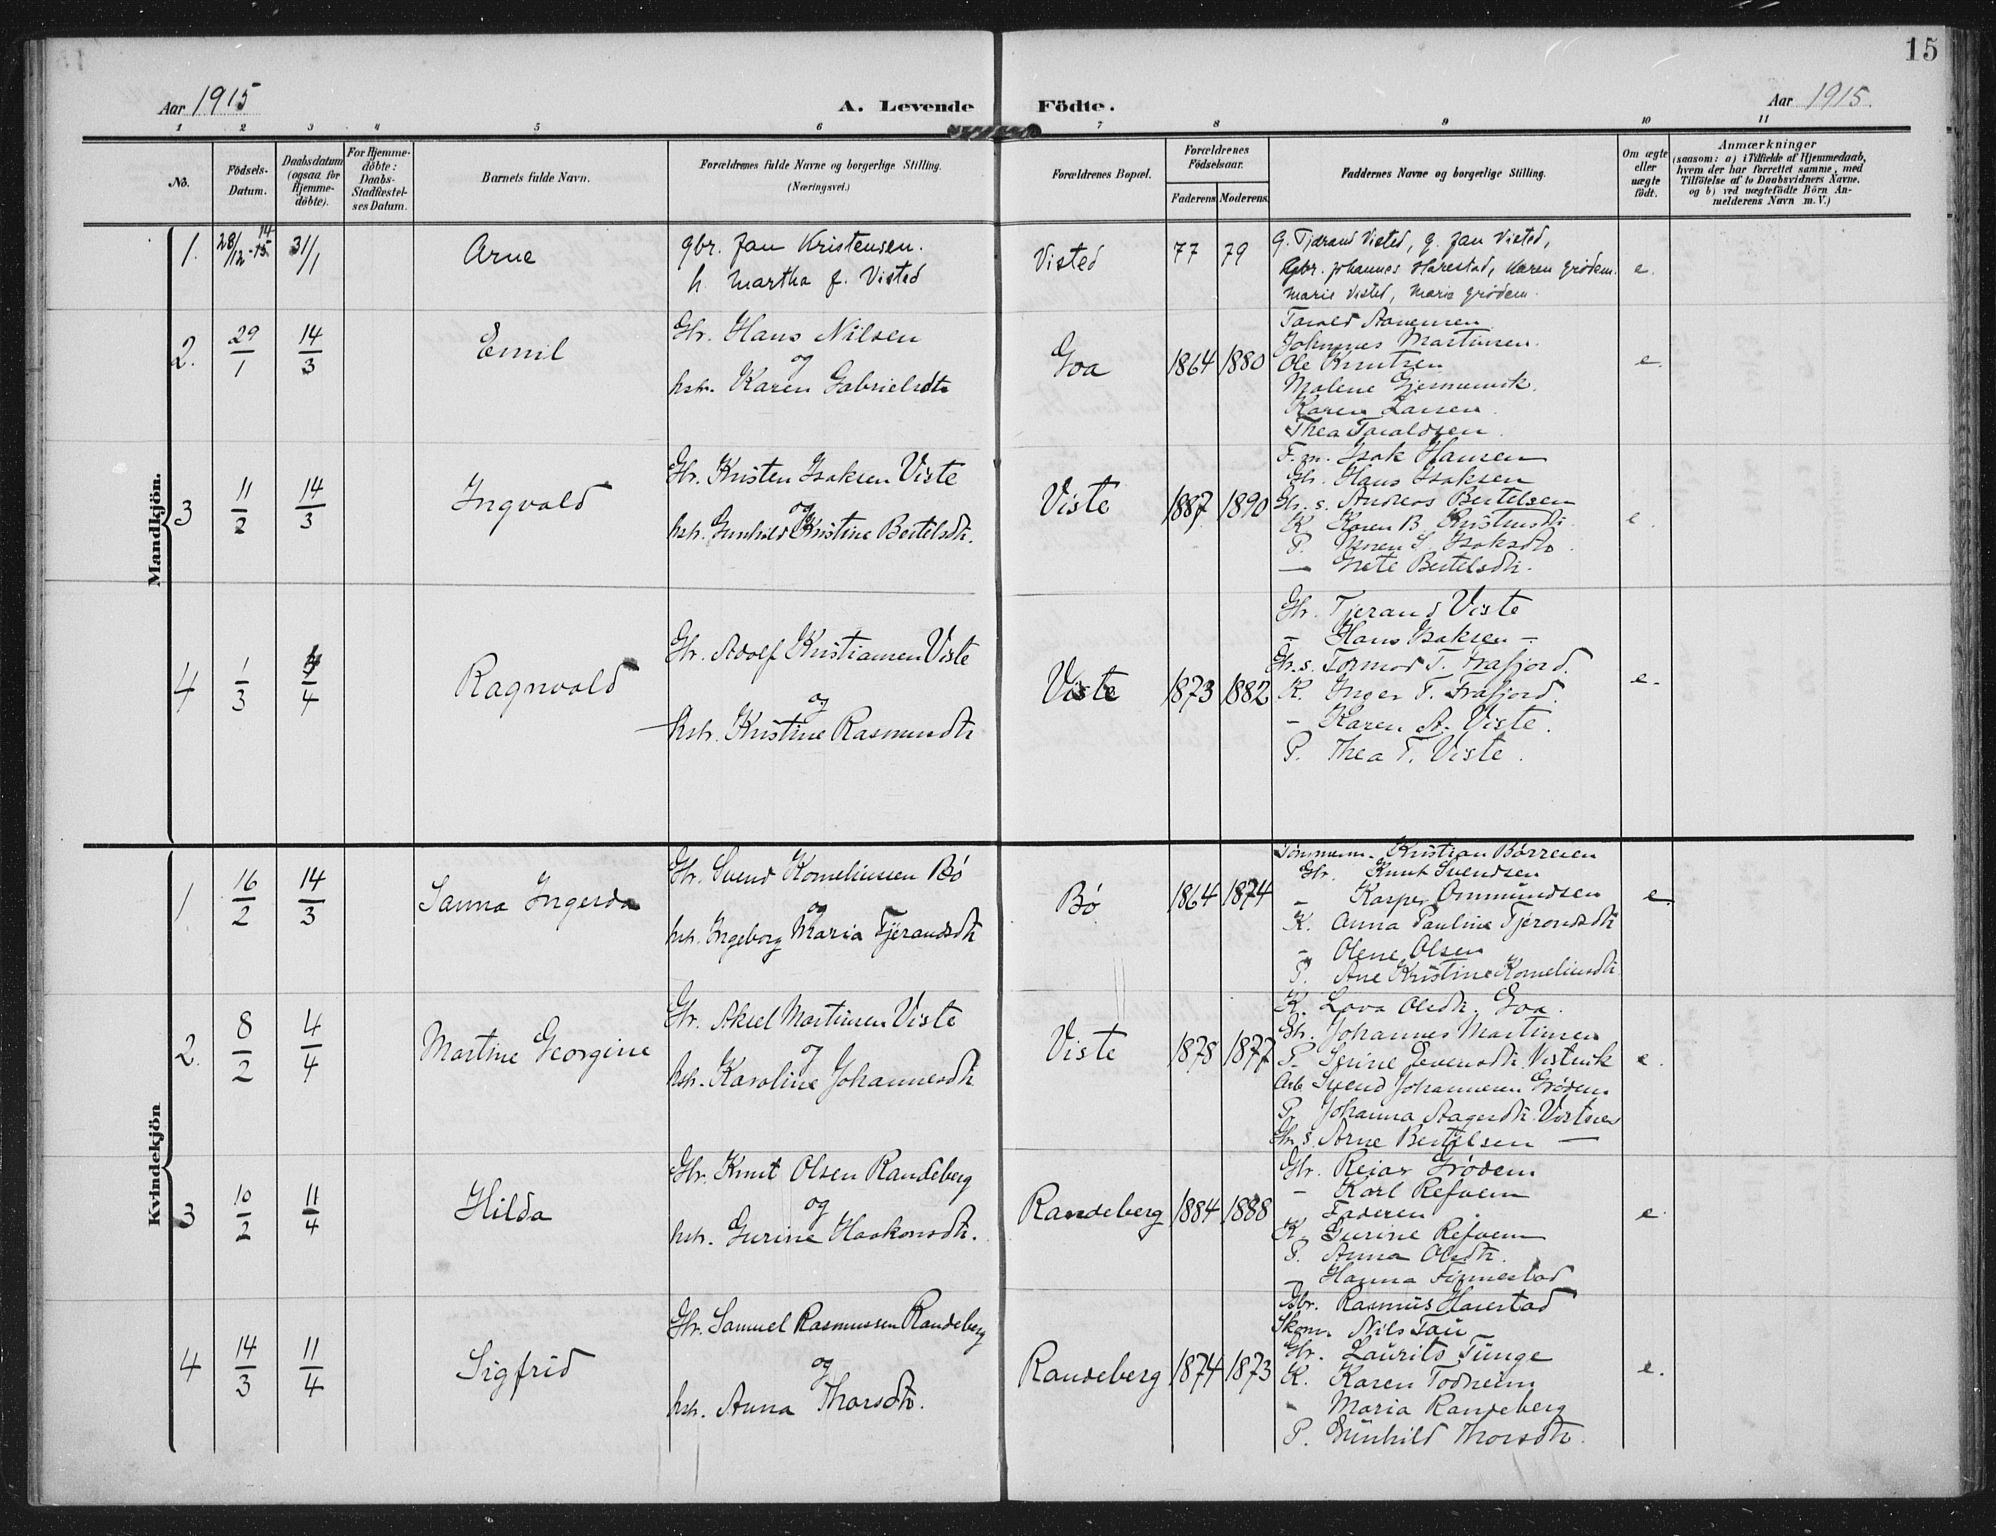 15
Aar 1915
A. Levende Födte.
Aar 1915.
1 2 3 4 5 6 7 8 9 10 11
No.
Födsels-Datum.
Daabsdatum (ogsaa for Hjemme-döbte).
For Hjemme-döbte: Daabs-Stadfæstel-ses Datum.
Barnets fulde Navn.
Forældrenes fulde Navne og borgerlige Stilling. (Næringsvei.)
Forældrenes Bopæl.
Forældrenes Födselsaar.
Faderens Moderens.
Faddernes Navne og borgerlige Stilling.
Om ægte eller uægte födt.
Anmærkninger
(saasom: a) i Tilfælde af Hjemmedaab, hvem der har forrettet samme, med Tilföielse af to Daabsvidners Navne. og b) ved uægtefödte Börn An-melderens Navn m. V.)
Mandkjön.
1. 28/12-14 15 31/1 Arne
gbr. Jan Kristensen.
h. Martha f. Visted
Visted 77 79
G. Tjærand Visted, g. Jan Visted,
Gbr. Johannes Harestad, Karen Grödem.
Marie Visted, Marie Grödem.
e.
2. 29/1 14/3 Emil
Gbr. Hans Nilsen
og
hstr. Karen Gabrielsdtr
Goa 1864 1880
Johannes Martinsen.
Ole Knutsen
Malene
Karen Larsen.
Thea Taraldsen.
e.
3 11/2 14/3 Ingvald
Gbr. Kristen Isaksen Viste
og
hstr. Gunhild Kristine Bertelsdtr.
Viste 1887 1890
F.m. Isak Hansen
Gbr. Hans Isaksen
Gbr. s. Andreas Bertelsen
K. Karen B.
P. Isaksdtr.
— Grete Bertelsdtr.
e.
4 1/3 4/4 Ragnvald
Gbr. Adolf Kristiansen Viste
og
hstr. Kristine Rasmusdtr
Viste 1873 1882
Gbr. Tjerand Viste
— Hans Isaksen —
Gbr.s. Tormod T. Frafjord.
K. Inger T. Frafjord.
— Karen A. Viste.
P. Thea T. Viste.
e.
Kvindekjön
1 16/2 14/3 Sanna Ingerda
Gbr. Svend Korneliussen Bö
og
hstr. Ingeborg Maria Tjerandsdtr
Bö 1864 1874
Kristian Börresen
Gbr. Knut Svendsen
— Kasper Ommundsen
K. Anna Pauline Tjerandsdtr
— Olene Olsen
P. Ane Kristine Korneliusdtr
e.
2. 8/2 4/4 Martine Georgine
Gbr. Aksel Martinsen Viste
og
hstr. Karoline Johannesdtr
Viste 1878 1877
K. Lava Olsdtr. Goa.
Gbr. Johannes Martinsen
P. Serine Vistnæs
Arb. Svend Johannesen Grödem.
P. Johanna Aagesdtr. Vistnæs
Gbr. s. Arne Bertelsen —
e.
3 10/2 11/4 Hilda
Gbr. Knut Olsen Randeberg
og
hstr. Gurine Haakonsdtr.
Randeberg 1884 1888
Gbr. Reiar Grödem
— Karl Refsem
Faderen
K. Gurine Refsem
P. Anna Olsdtr.
— Hanna Finnestad
e.
4 14/3 11/4 Sigfrid
Gbr. Samuel Rasmussen Randeberg
og
hstr. Anna Thorsdtr.
Randeberg 1874 1873
Gbr. Rasmus Harestad
Skom. Nils Tau
Gbr. Laurits Tunge
K. Karen Todneim
— Maria Randeberg
P. Gunhild Thorsdtr.
e.